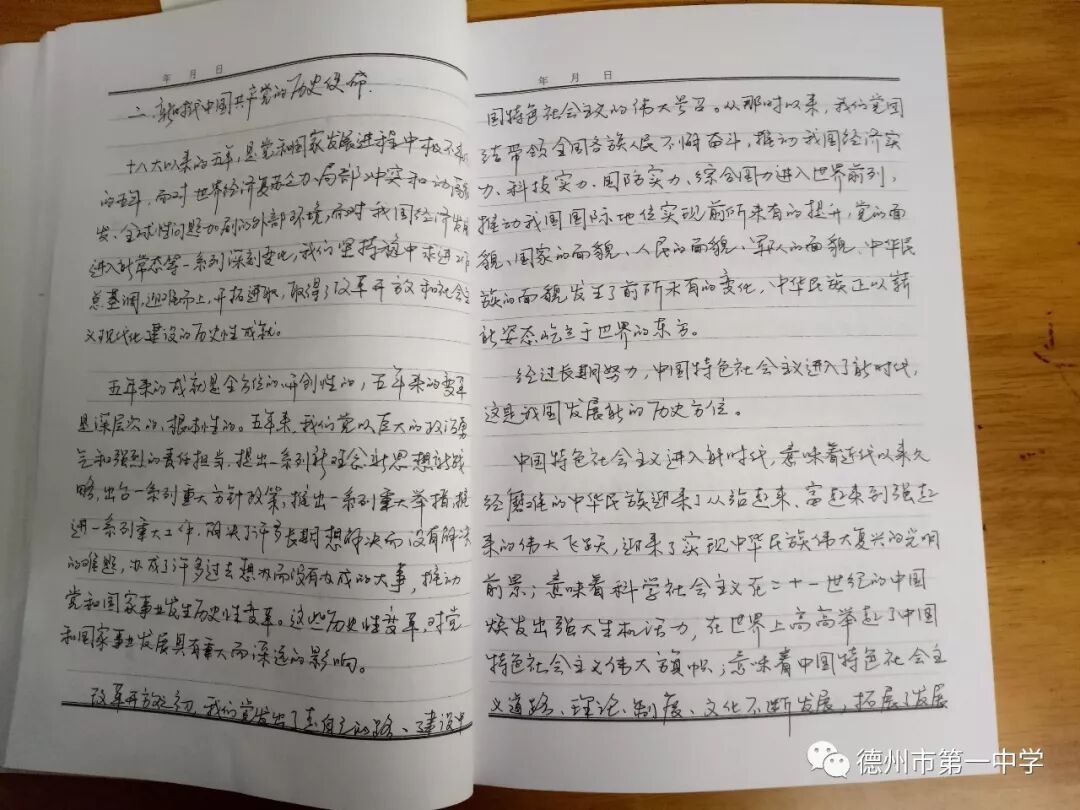 年 月 日
二、新时代中国共产党的历史使命
十八大以来的五年,是党和国家发展进程中极不平凡
的五年,面对世界经济复苏乏力、局部冲突和动荡频
发、全球性问题加剧的外部环境,面对我国经济发展
进入新常态等一系列深刻变化,我们坚持稳中求进工作
总基调,迎难而上,开拓进取,取得了改革开放和社会主
义现代化建设的历史性成就。
五年来的成就是全方位的、开创性的,五年来的变革
是深层次的、根本性的。五年来,我们党以巨大的政治勇
气和强烈的责任担当,提出一系列新理念新思想新战
略,出台一系列重大方针政策,推出一系列重大举措,推
进一系列重大工作,解决了许多长期想解决而没有解决
的难题,办成了许多过去想办而没有办成的大事,推动
党和国家事业发生历史性变革。这些历史性变革,对党
和国家事业发展具有重大而深远的影响。
改革开放之初,我们党发出了走自己的路、建设中
年 月 日
国特色社会主义的伟大号召。从那时以来,我们党团
结带领全国各族人民不懈奋斗,推动我国经济实
力、科技实力、国防实力、综合国力进入世界前列,
推动我国国际地位实现前所未有的提升,党的面
貌、国家的面貌、人民的面貌、军队的面貌、中华民
族的面貌发生了前所未有的变化,中华民族正以崭
新姿态屹立于世界的东方。
经过长期努力,中国特色社会主义进入了新时代,
这是我国发展新的历史方位。
中国特色社会主义进入新时代,意味着近代以来久
经磨难的中华民族迎来了从站起来、富起来到强起
来的伟大飞跃,迎来了实现中华民族伟大复兴的光明
前景;意味着科学社会主义在二十一世纪的中国
焕发出强大生机活力,在世界上高高举起了中国
特色社会主义伟大旗帜;意味着中国特色社会主
义道路、理论、制度、文化不断发展,拓展了发展
德州市第一中学